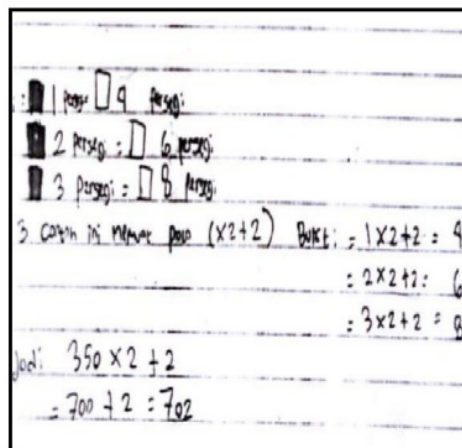 : ■ 1 perseg □ 4 persegi
■ 2 persegi = □ 6 persegi
■ 3 persegi = □ 8 persegi
3 contoh ini pola (×2+2) Bukti : = 1×2+2 = 4
= 2×2+2 = 6
= 3×2+2 = 8
Jadi: 350×2+2
= 700+2 = 702